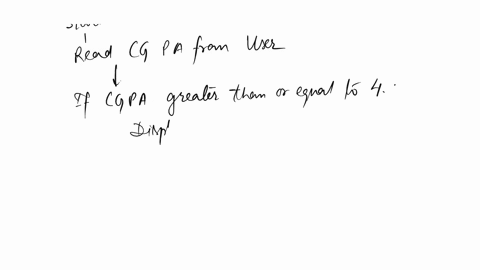 Read CG PA from User
If CGPA greater than or equal to 4.
Disp